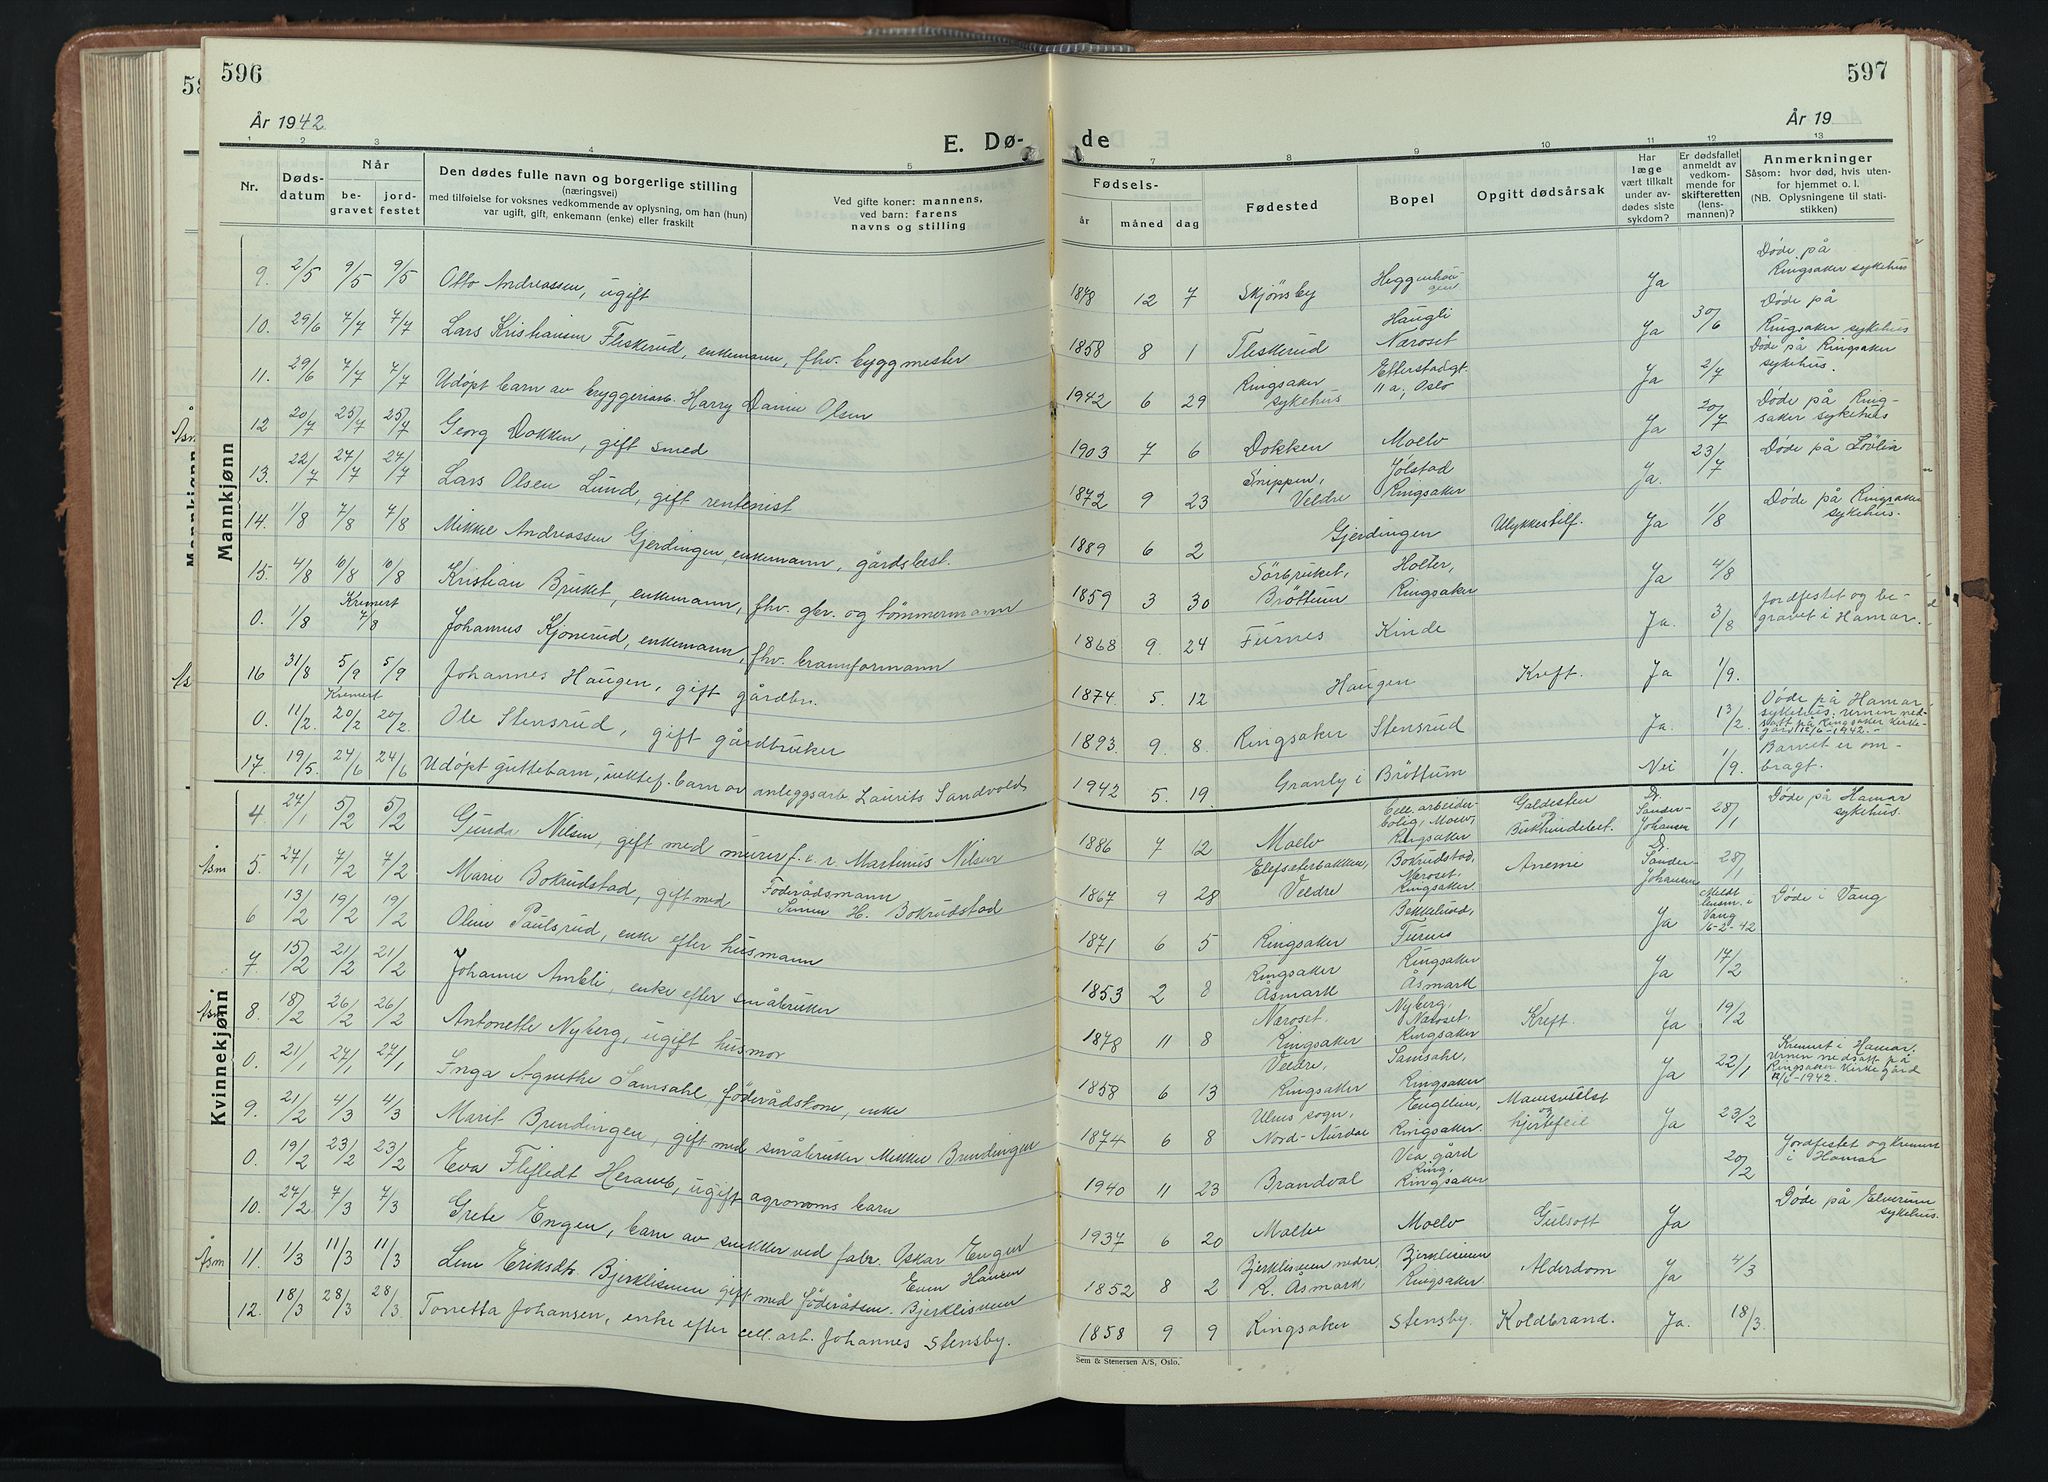 596
597
År 1942
År 19
E. Dø-
de
1 2 3 4 5 7 8 9 10 11 12 13
Nr.
Døds-
datum
Når
be-
gravet
jord-
festet
Den dødes fulle navn og borgerlige stilling
(næringsvei)
med tilføielse for voksnes vedkommende av oplysning, om han (hun)
var ugift, gift, enkemann (enke) eller fraskilt
Ved gifte koner: mannens,
ved barn: farens
navns og stilling
Fødsels-
år måned dag
Fødested
Bopel
Opgitt dødsårsak
Har
læge
vært tilkalt
under av-
dødes siste
sykdom?
Er dødsfallet
anmeldt av
vedkom-
mende for
skifteretten
(lens-
mannen)?
Anmerkninger
Såsom: hvor død, hvis uten-
for hjemmet o. l.
(NB. Oplysningene til stati-
stikken)
Mannkjønn
9. 2/5 9/5 9/5 Otto Andreassen, ugift 1878 12 7 Skjønsby Heggenhau-
gen Ja Døde på
Ringsaker sykehus
10. 29/6 7/7 7/7 Lars Kristiansen Fliskerud, enkemann, fhv. byggmester 1858 8 1 Fliskerud Haugli
Næroset Ja 30/6 Døde på
Ringsaker sykehus
11. 29/6 7/7 7/7 Udøpt barn av bryggeriarb. Harry Daniel Olsen 1942 6 29 Ringsaker
sykehus Etterstadgt.
11 a, Oslo Ja 2/7 Døde på Ringsaker
sykehus.
12 20/7 25/7 25/7 Georg Dokken, gift smed 1903 7 6 Dokken Moelv Ja 20/7 Døde på Ring-
saker sykehus
13. 22/7 27/7 27/7 Lars Olsen Lund, gift rentenist 1872 9 23 Snippen,
Veldre Jølstad
Ringsaker Ja. 23/7 Døde på Løvlia
14. 1/8 7/8 7/8 Mikkel Andreassen Gjerdingen, enkemann, gårdsbest. 1889 6 2 Gjerdingen Ulykkestilf. Ja 1/8 Døde på Ringsaker
sykehus.
15. 4/8 10/8 10/8 Kristian Bruket, enkemann, fhv. gbr. og tømmermann 1859 3 30 Sørbruket,
Brøttum Holter,
Ringsaker Ja 4/8
0. 1/8 Kremert
7/8 Johannes Kjønerud, enkemann, fhv. brannformann 1868 9. 24 Furnes Kinde Ja. 3/8 Jordfestet og be-
gravet i Hamar.
16 31/8 5/9 5/9 Johannes Haugen, gift gårdbr. 1874 5. 12 Haugen Kreft. Ja 1/9.
0. 11/2. Kremert
20/2 20/2. Ole Stensrud, gift gårdbruker 1893. 9. 8. Ringsaker Stensrud Ja. 13/2. Døde på Hamar
sykehus. Urnen ned-
satt på Ringsaker kirke-
gård 12/6-1942.-
17. 19/5. 24/6 24/6 Udøpt guttebarn, uektef. barn av anleggsarb. Laurits Sandvold 1942 5. 19. Granly i Brøttum Nei 1/9. Barnet er om-
bragt.
Kvinnekjønn
4. 27/1 5/2 5/2 Gunda Nilsen, gift med murerf. Martinus Nilsen 1886 7 12 Moelv Cell. arbeider-
bolig, Moelv,
Ringsaker Galdesten
og
Bukhindebet. Dr.
Sander-
Johansen 28/1 Døde på Hamar
sykehus.
Åsm 5. 27/1 7/2 7/2 Marie Bokrudstad, gift med Føderådsmann
Simen H. Bokrudstad 1867 9 28 Elefsæterbakken,
Veldre Bokrudstad,
Næroset,
Ringsaker Anemi Dr.
Sander-
Johansen 28/1
6 13/2 19/2 19/2 Oline Paulsrud, enke efter husmann 1871 6 5 Ringsaker Bekkelund,
Furnes Ja Meldt
lensm. i
Vang
16-2-42 Døde i Vang
7 15/2 21/2 21/2 Johanne Ambli, enke efter småbruker 1853 2 8 Ringsaker
Åsmark Ringsaker
Åsmark Ja 17/2
Åsm 8. 18/2 26/2 26/2 Antonette Nyberg, ugift husmor 1878 11 8 Næroset.
Ringsaker Nyberg,
Næroset.
Ringsaker Kreft. Ja 19/2
0. 21/1 27/1 27/1 Inga Agnethe Samsahl, føderådskone, enke 1858 6 13 Veldre,
Ringsaker Samsahl,
Ringsaker Ja 22/1 Kremert i Hamar.
Urnen nedsatt på
Ringsaker Kirkegård
12/6-1942.
9. 21/2 4/3 4/3 Marit Brendingen, gift med småbruker Mikkel Brendingen 1874 6 8 Ulnes sogn,
Nord-Aurdal Engelien,
Ringsaker. Mavesvulst
og
hjertefeil Ja 23/2
0. 19/2 23/2 23/2 Eva Flifledt Heramb, ugift agronoms barn 1940 11 23 Brandval Vea gård
Ring.
Ringsaker 20/2 Jordfestet og kremert
i Hamar
10. 27/2 7/3 7/3 Grete Engen, barn av snekker ved fabr. Oskar Engen 1937 6 20 Moelv Moelv Gulsott Ja Døde på Elverum
sykehus.
Åsm 11. 1/3 11/3 11/3 Lene Eriksdtr. Bjerklisveen gift med føderådsm. Even Hansen
Bjerklisveen 1852 8 2 Bjerklisveen nedre,
R. Åsmark Bjerklisveen
Ringsaker Alderdom Ja 4/3
12. 18/3 28/3 28/3 Tonetta Johansen, enke efter cell. arb. Johannes Stensby. 1858 9 9 Ringsaker Stensby. Koldbrand. Ja. 18/3
Sem & Stenersen A/S, Oslo.